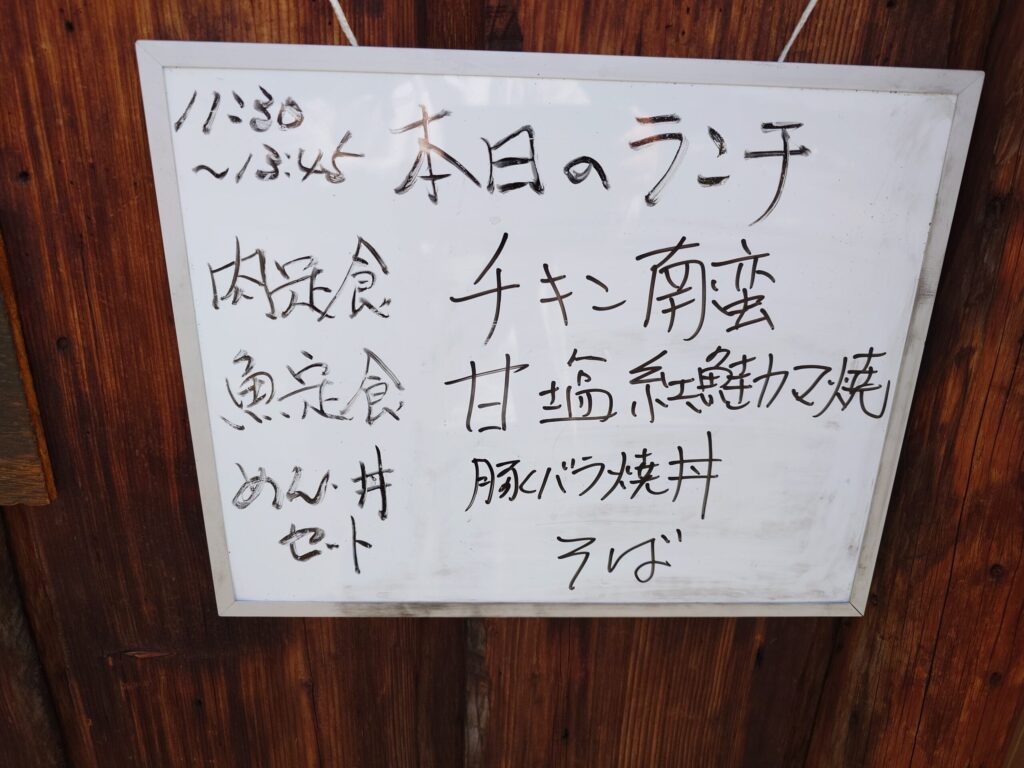 11:30
～13:45
本日のランチ
肉定食 チキン南蛮
魚定食 甘塩紅鮭カマ焼
めん・丼 豚バラ焼丼
セット そば